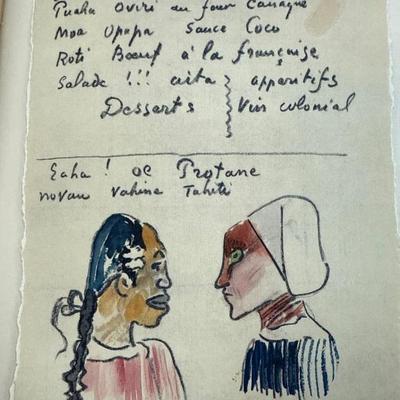 Puaha Oviri au four Canaque
Moa Opapa Sauce Coco
Roti Bœuf à la française
Salade !!! aita apparitifs
Desserts Vin colonial
Eaha ! oe Protane
novau vahine Tahiti